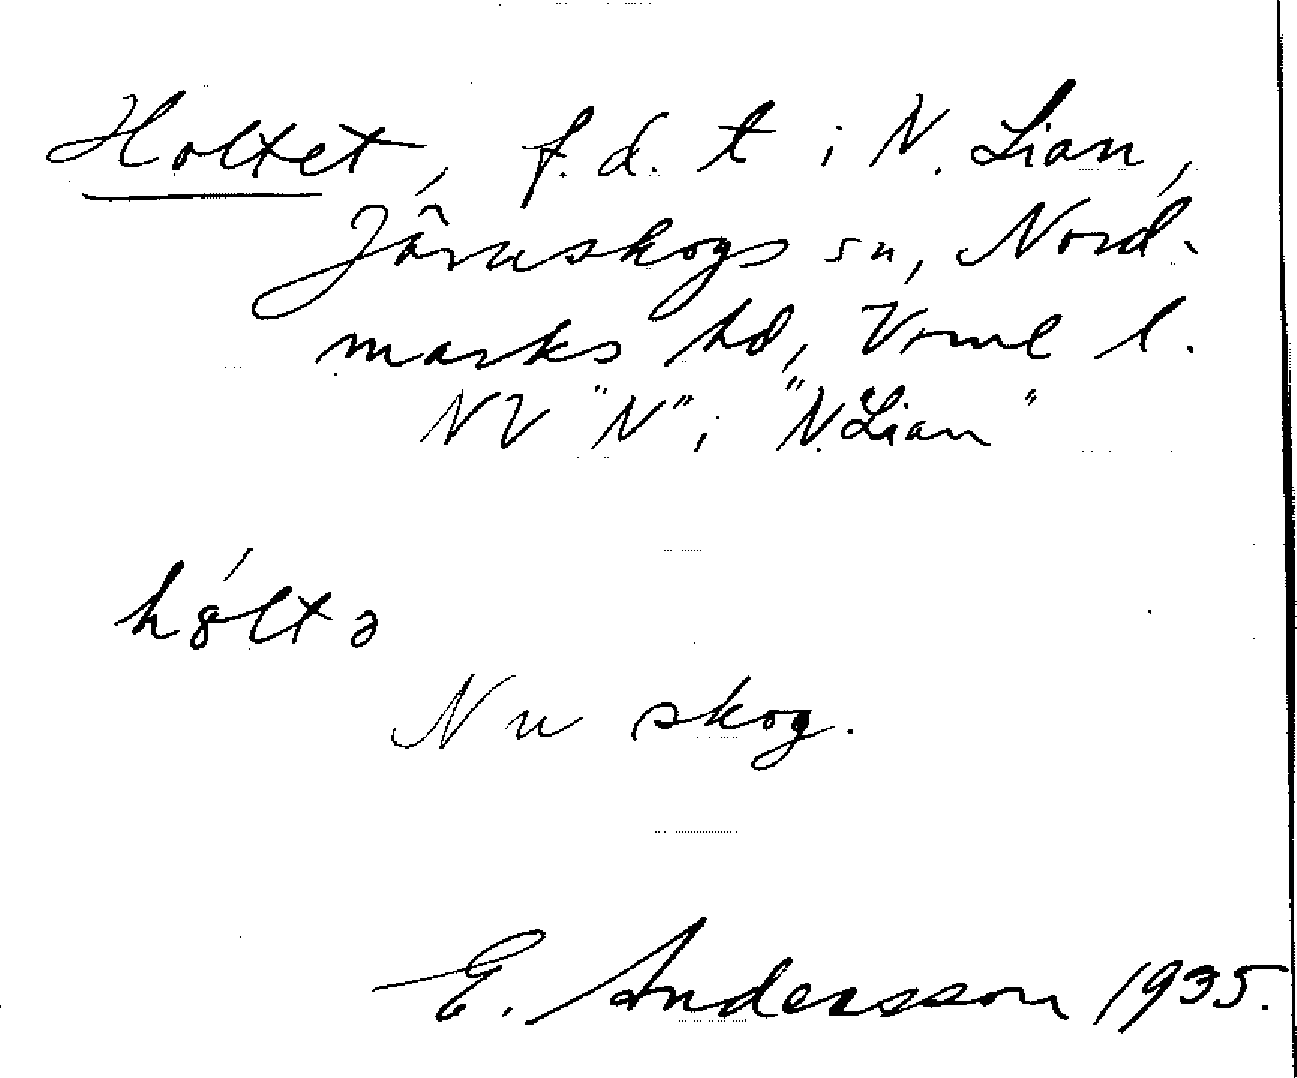 Holtet, f.d. t i N. Lian,
Järnskogs sn, Nord-
marks hd, Vrml l.
NV "N" i "N. Lian"
hôltə
Nu skog.
E. Andersson 1935.